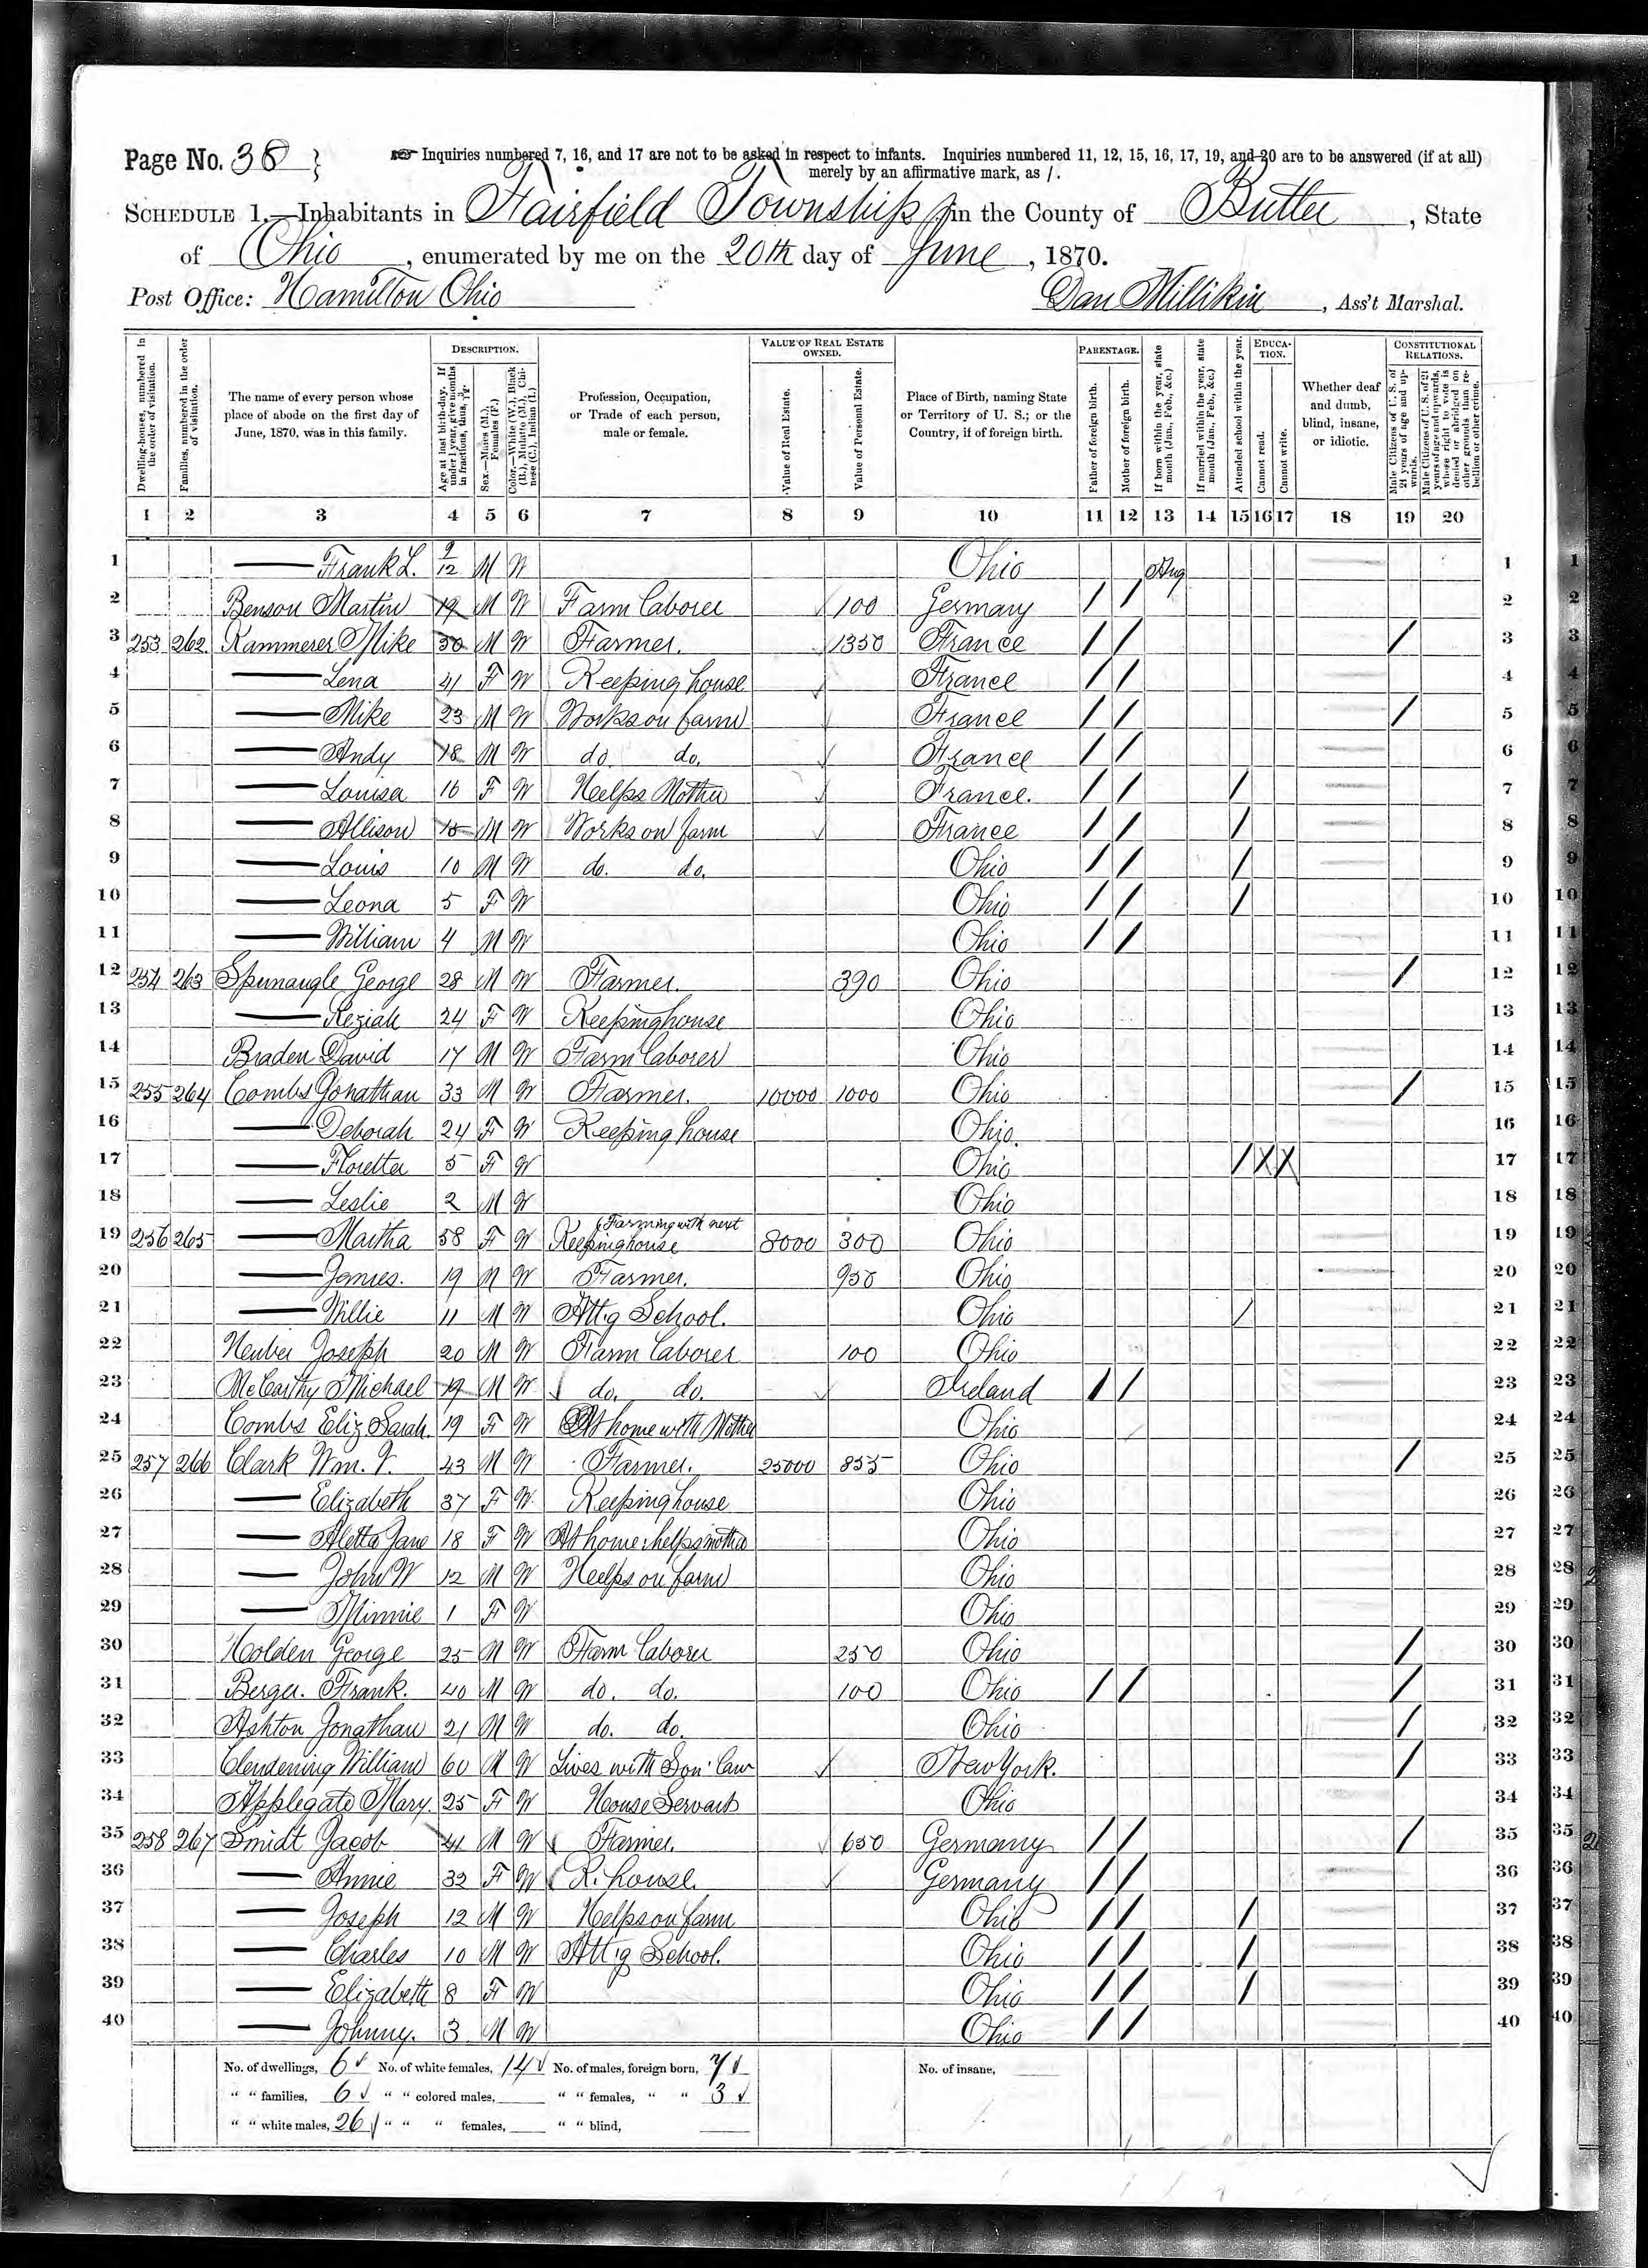 Page No. 38 } ☞ Inquiries numbered 7, 16, and 17 are not to be asked in respect to infants. Inquiries numbered 11, 12, 15, 16, 17, 19, and 20 are to be answered (if at all)
merely by an affirmative mark, as /.
SCHEDULE 1.—Inhabitants in Fairfield Township, in the County of Butler, State
of Ohio, enumerated by me on the 20th day of June, 1870.
Post Office: Hamilton Ohio Dan Millikin, Ass't Marshal.
Dwelling-houses, numbered in the order of visitation.
Families, numbered in the order of visitation.
The name of every person whose place of abode on the first day of June, 1870, was in this family.
DESCRIPTION.
Age at last birth-day. If under 1 year, give months in fractions, thus, 3/12.
Sex.—Males (M.), Females (F.)
Color.—White (W.), Black (B.), Mulatto (M.), Chinese (C.), Indian (I.)
Profession, Occupation, or Trade of each person, male or female.
VALUE OF REAL ESTATE OWNED.
Value of Real Estate.
Value of Personal Estate.
Place of Birth, naming State or Territory of U. S.; or the Country, if of foreign birth.
PARENTAGE.
Father of foreign birth.
Mother of foreign birth.
If born within the year, state month (Jan., Feb., &c.)
If married within the year, state month (Jan., Feb., &c.)
Attended school within the year.
EDUCATION.
Cannot read.
Cannot write.
Whether deaf and dumb, blind, insane, or idiotic.
CONSTITUTIONAL RELATIONS.
Male Citizens of U. S. of 21 years of age and upwards.
Male Citizens of U. S. of 21 years of age and upwards, whose right to vote is denied or abridged on other grounds than rebellion or other crime.
1 2 3 4 5 6 7 8 9 10 11 12 13 14 15 16 17 18 19 20
1 — Frank L. 9/12 M W Ohio Aug 1
2 Benson Martin 19 M W Farm laborer 100 Germany / / 2
3 253 262 Kammerer Mike 50 M W Farmer. 1350 France / / / 3
4 — Lena 41 F W Keeping house France / / 4
5 — Mike 23 M W Works on farm France / / / 5
6 — Andy 18 M W do. do. France / / 6
7 — Louisa 16 F W Helps Mother France. / / / 7
8 — Allison 15 M W Works on farm France / / / 8
9 — Louis 10 M W do. do. Ohio / / / 9
10 — Leona 5 F W Ohio / / / 10
11 — William 4 M W Ohio / / 11
12 254 263 Spurnaugle George 28 M W Farmer. 390 Ohio / 12
13 — Keziah 24 F W Keeping house Ohio 13
14 Braden David 17 M W Farm laborer Ohio 14
15 255 264 Combs Jonathan 33 M W Farmer. 10000 1000 Ohio / 15
16 — Deborah 24 F W Keeping house Ohio. 16
17 — Floretta 5 F W Ohio / X X 17
18 — Leslie 2 M W Ohio 18
19 256 265 — Martha 58 F W Keeping house (Farming with next 8000 300 Ohio 19
20 — James. 19 M W Farmer. 950 Ohio 20
21 — Willie 11 M W Att'g School. Ohio / 21
22 Neuber Joseph 20 M W Farm laborer 100 Ohio 22
23 McCarthy Michael 19 M W do. do. Ireland / / 23
24 Combs Eliz Sarah. 19 F W At home with Mother Ohio 24
25 257 266 Clark Wm. V. 43 M W Farmer. 25000 855 Ohio / 25
26 — Elizabeth 37 F W Keeping house Ohio 26
27 — Aletta Jane 18 F W At home & helps mother Ohio 27
28 — John W 12 M W Helps on farm Ohio 28
29 — Minnie 1 F W Ohio 29
30 Holden George 25 M W Farm laborer 250 Ohio / 30
31 Berger. Frank. 40 M W do. do. 100 Ohio / / / 31
32 Ashton Jonathan 21 M W do. do. Ohio / 32
33 Clendening William 60 M W Lives with Son' law New York. / 33
34 Applegate Mary. 25 F W House Servant Ohio 34
35 258 267 Smidt Jacob 41 M W Farmer. 650 Germany / / / 35
36 — Annie 32 F W K. house. Germany / / 36
37 — Joseph 12 M W Helps on farm Ohio / / / 37
38 — Charles 10 M W Att'g School. Ohio / / / 38
39 — Elizabeth 8 F W Ohio / / / 39
40 — Johnny. 3 M W Ohio / / 40
No. of dwellings, 6 No. of white females, 14 No. of males, foreign born, 7 No. of insane,
" " families, 6 " " colored males, " " females, " " 3
" " white males, 26 " " " females, " " blind,